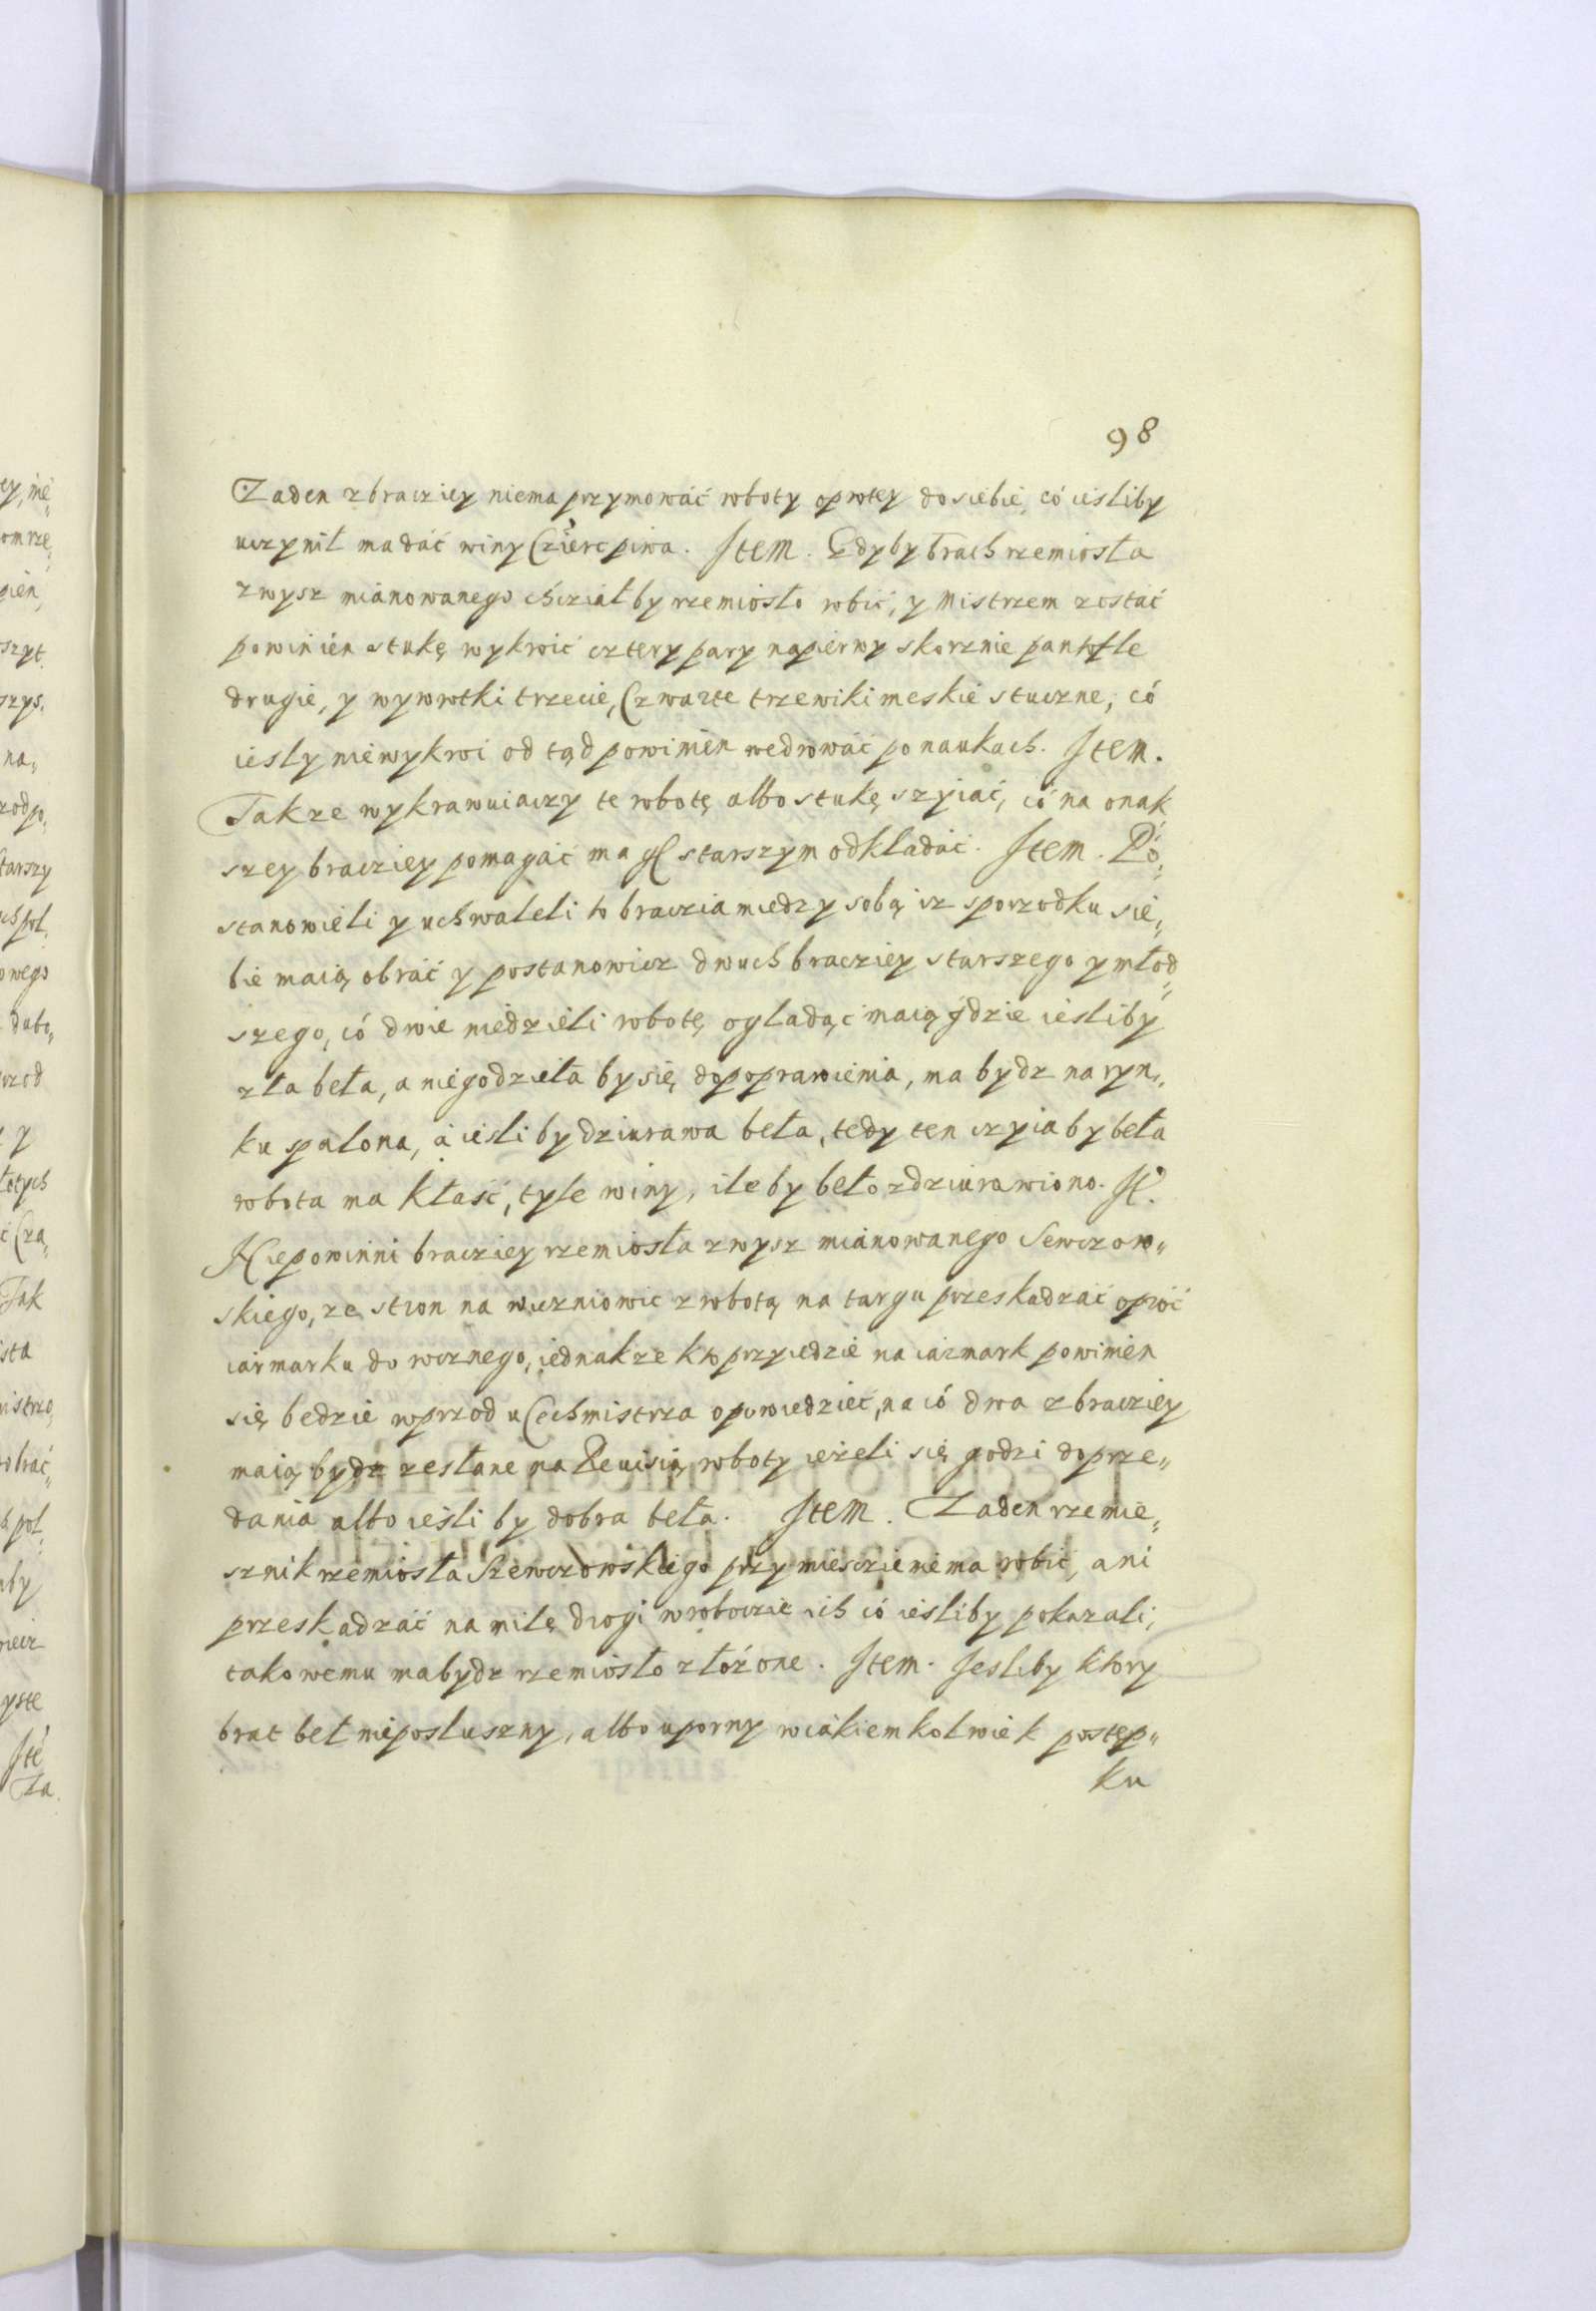 98
Zaden z bracziey niema przymowáć roboty oprotey do siebie, có iesliby
uczynił ma dáć winy Czierc piwa. Item. Gdyby brach rzemiosła
zwysz mianowanego chcziałby rzemiosło robić, y Mistrzem zostać
powinien stukę wykroić cztery pary napierwy skorznie pantofle
drugie, y wywrotki trzecie, Czwarte trzewiki meskie stuczne, có
iesly niewykroi od tąd powinien wedrowáć po naukach. Item.
Takze wykrawuiaczy te robotę albo stukę szyiać, có na onak
szey bracziey pomagáć ma starszym odkładáć. Item. Pó„
stanowieli y uchwaleli to braczia miedzy sobą isz sporzodku sie„
bie maią obráć y postanowicz dwuch bracziey starszego y młod„
szego, có dwie niedzieli robotę ogladąć maią gdzie iesliby
zła beła, a niegodzieła by się do poprawienia, ma bydz na ryn„
ku spalona, á iesli by dziurawa beła, tedy ten czyia by beła
robota ma kłaść, tyle winy, ile by beło zdziurawiono. It.
Niepowinni bracziey rzemiosła zwysz mianowanego Sewczow„
skiego, ze stron na wuzniowie z robotą na targu przeskadzać oproć
iarmarku do rocznego, iednakze kto przyiedzie na iarmark powinien
się bedzie wprzod u Cechmistrza opowiedzieć, na có dwa z bracziey
maią bydz zesłane na Reuisią roboty iezeli się godzi do prze„
dania albo iesli by dobra beła. Item. Zaden rzemie„
sznik rzemiosła Szewczowskiego przy miesczie niema robić, ani
przeskadzać na milę drogi w roboczie ich có iesliby pokazali,
takowemu ma bydz rzemiosło złożone. Item. Jesliby ktory
brat beł nieposłuszny, albo uporny w iakiemkolwiek postęp„
ku